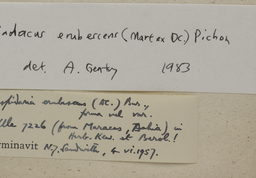 erubescens (Mart ex DC) Pichon
det. A. Gentry 1983
erubescens (DC.) Bur.,
forma vel var.
7226 (from Maracas, Bahia) in
Herb. Kew. et Brit!
rminavit N.Y. Sandwith, 6. vi. 1957.